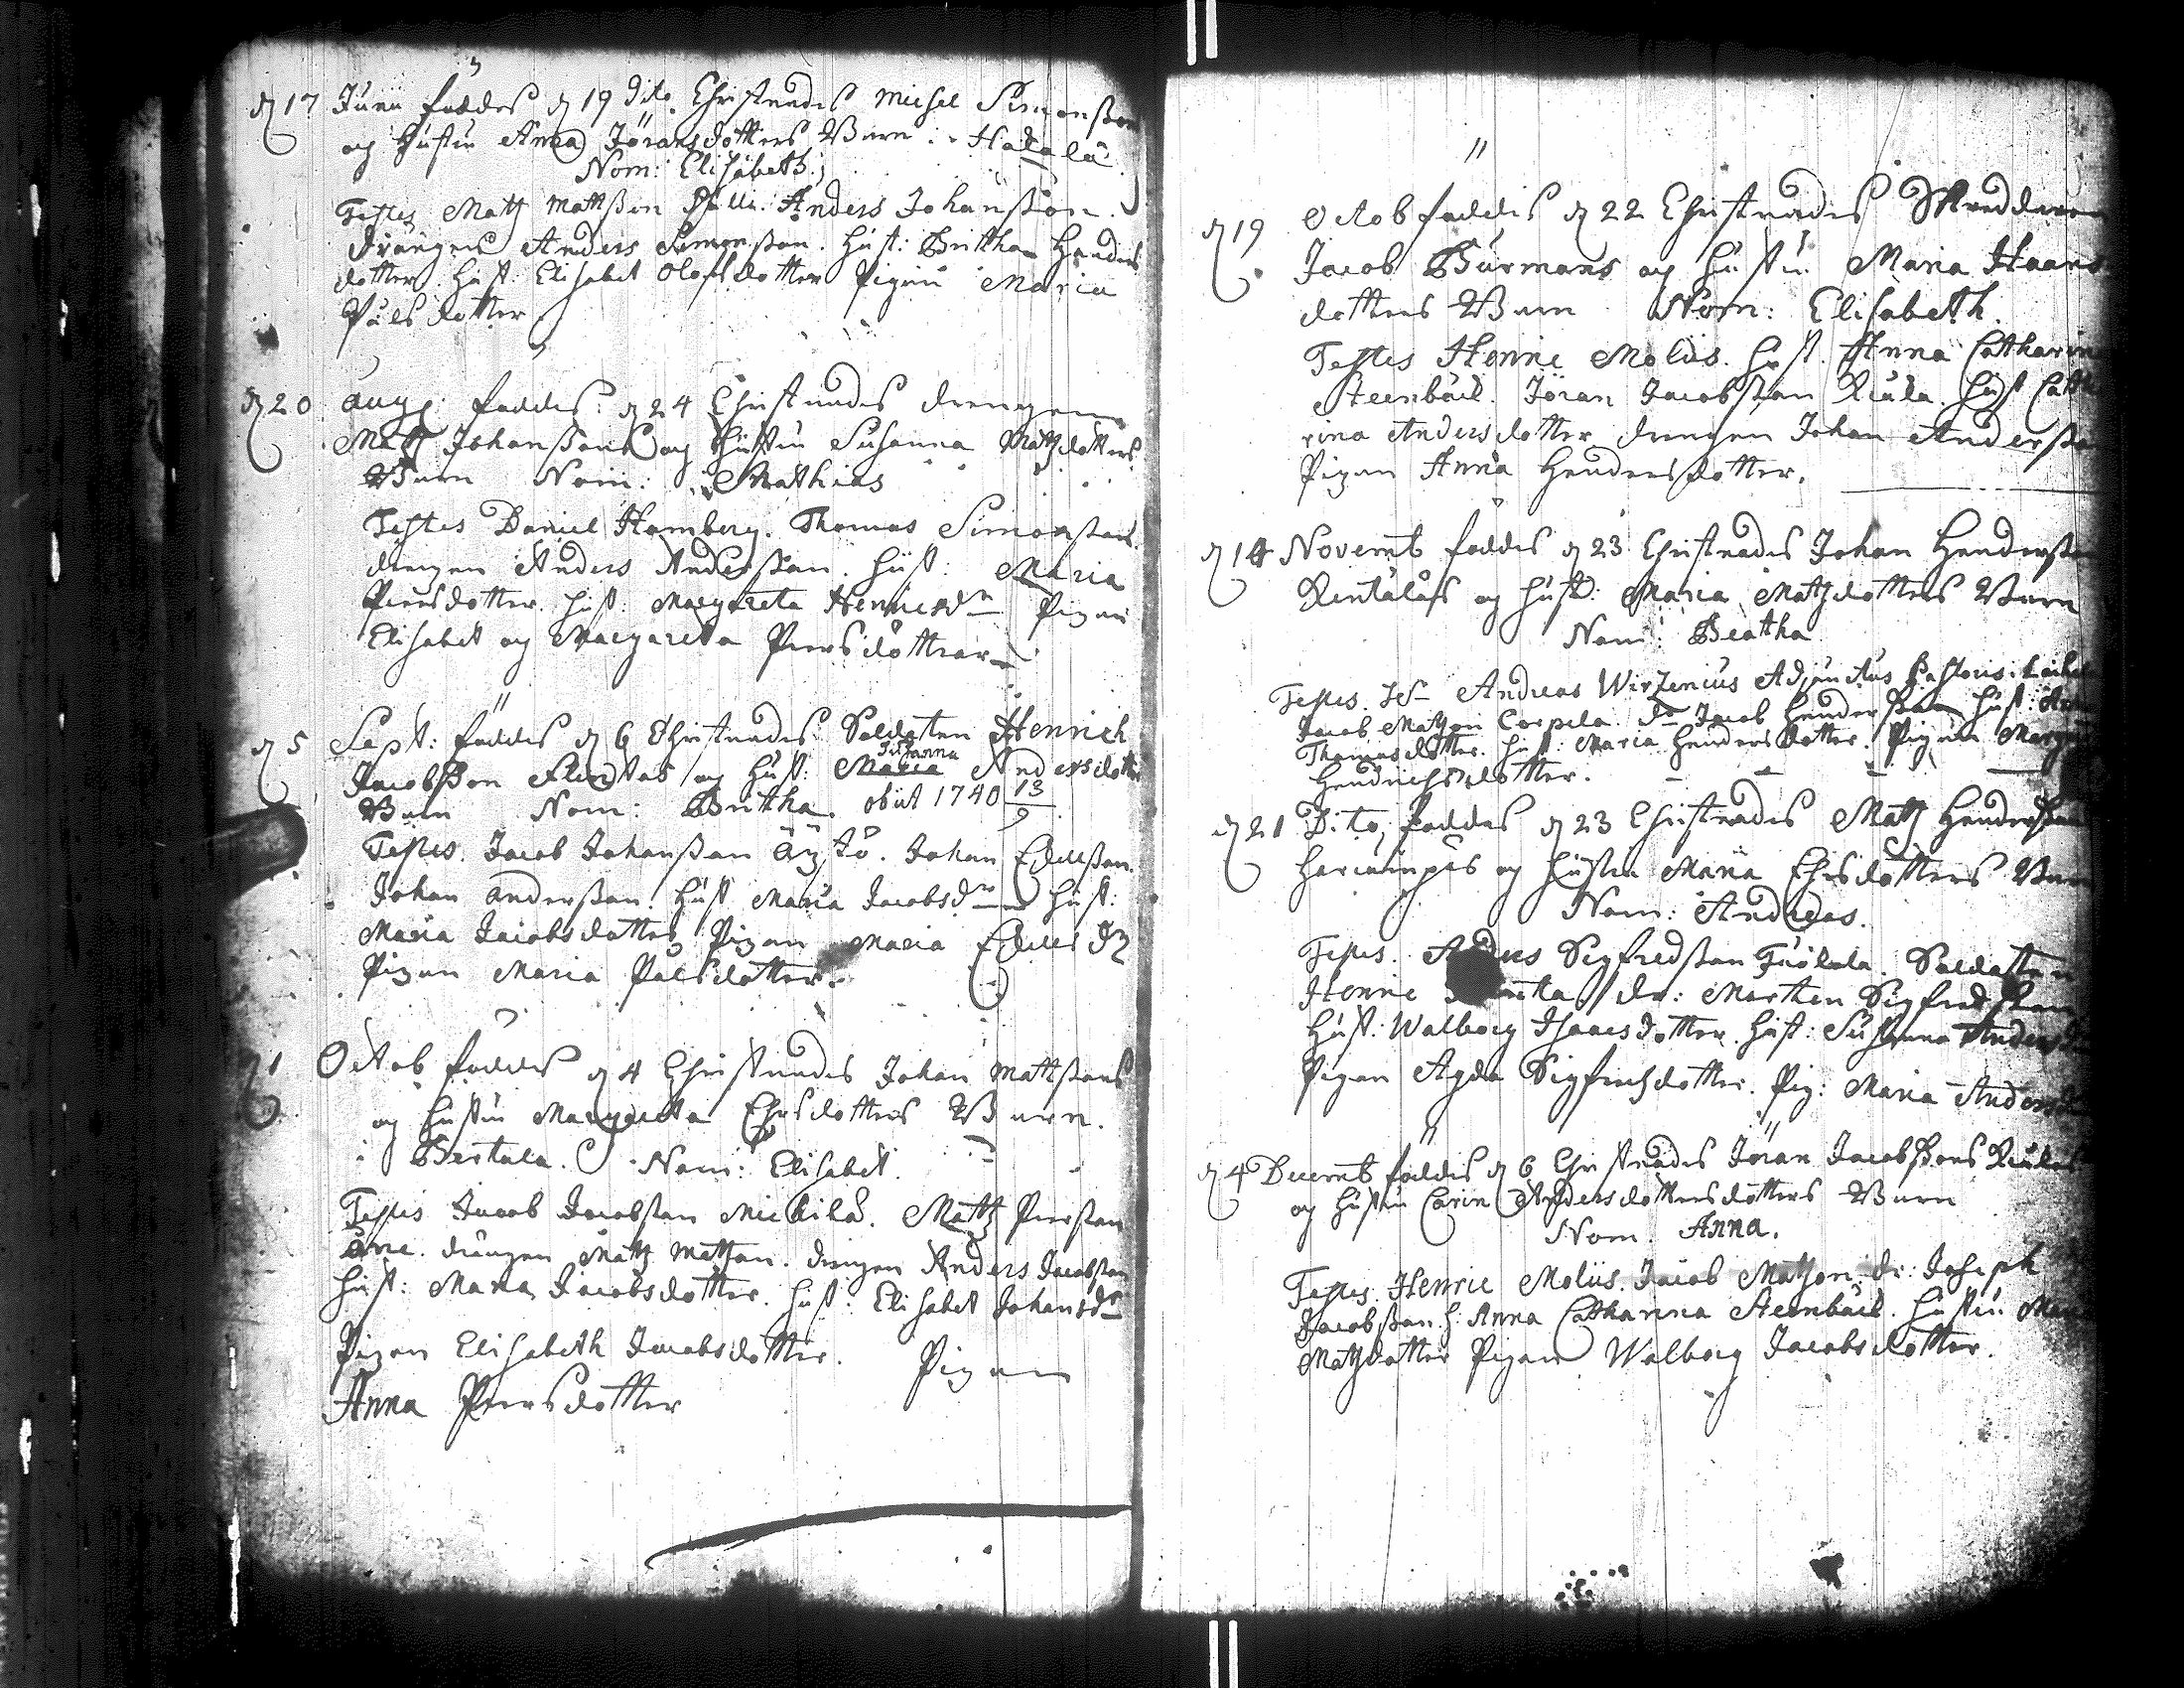 d 17 Junii föddes d 19 dito Christnades Michel Simonsson
og Hustru Anna Jöransdotters Barn
Nom: Elisabeth.
Testes Matz Mattsson Anders Johansson.
Drängen Anders Simonsson. Hust: Brittha Hendrs
dotter. Hust: Elisabet Olofsdotter Pigan Maria
Pålsdotter
d 20 Aug: föddes: d 24 Christnades drengen
Matz Johanssons og Hustru Susanna Matzdotters
Barn Nom: Mathias
Testes Daniel Hamberg. Thomas Simonsson.
drengen Anders Andersson. Hust: Maria
Piersdotter. Hust: Margareta Henricsdr Pigan
Elisabet og Margareta Piersdöttrar
d 5 Sept: föddes d 6 Christnades Soldaten Henrich
Susanna
Jacobsson og Hust: Maria Andersdotter
Barn Nom: Brittha. obiit 1740 13/9
Testes. Jacob Johansson Äystö. Johan Erichsson.
Johan Andersson. Hust Maria Jacobsdr Hust:
Maria Jacobsdotter Pigan Maria
Pigan Maria Pålsdotter.
d 1 Octob föddes d 4 Christnades Johan Mattssons
og Hustru Margareta Ehrsdotters Barn.
Bertula. Nom: Elisabet.
Testes Jacob Jacobsson Mickilä. Matz Piersson
drängen Matz Matzson. drengen Anders Jacobsson
Hust: Maria Jacobsdotter. Hust: Elisabet Johansdr
Pigan Elisabeth Jacobsdotter. Pigan
Anna Piersdotter
d 19 Octob föddes d 22 Christnades Skreddaren
Jacob Burmans og Hustru Maria
dotters Barn Nom: Elisabeth.
Testes Henric Moliis. Hust. Anna Catharina
Steenbäck. Jöran Jacobsson Hust Catha
rina Andersdotter drengen Johan Andersson
Pigan Anna Hendersdotter.
d 14 Novemb föddes d 23 Christnades Johan Hendersson
og Hust: Maria Matzdotters Barn
Nom: Beatha
Testes. Hr Andreas Wirzenius Adjunctus Pastoris
Jacob Matzon Corpela. dr Jacob Hendersson Hust:
Thomasdotter. Hust: Maria Hendersdotter. Pigan
Hendrichsdotter.
d 21 Dito, föddes d 23 Christnades Matz Hendersson
og Hustru Maria Ehrsdotters Barn
Nom: Andreas.
Testes. Sigfredsson Soldaten
Henric dr: Marthen Sigfredsson
Hust: Walborg Isaacsdotter. Hust: Susanna
Pigan Agda Sigfredsdotter. Pig: Maria
d 4 Decemb föddes d 6 Christnades Jöran Jacobssons
og Hustru Carin Andersdottersdotters Barn
Nom. Anna.
Testes. Henric Moliis. Jacob Matzon dr: Joseph
Jacobsson. H: Anna Catharina Steenbäck. Hustru
Matzdotter Pigan Walborg Jacobsdotter.